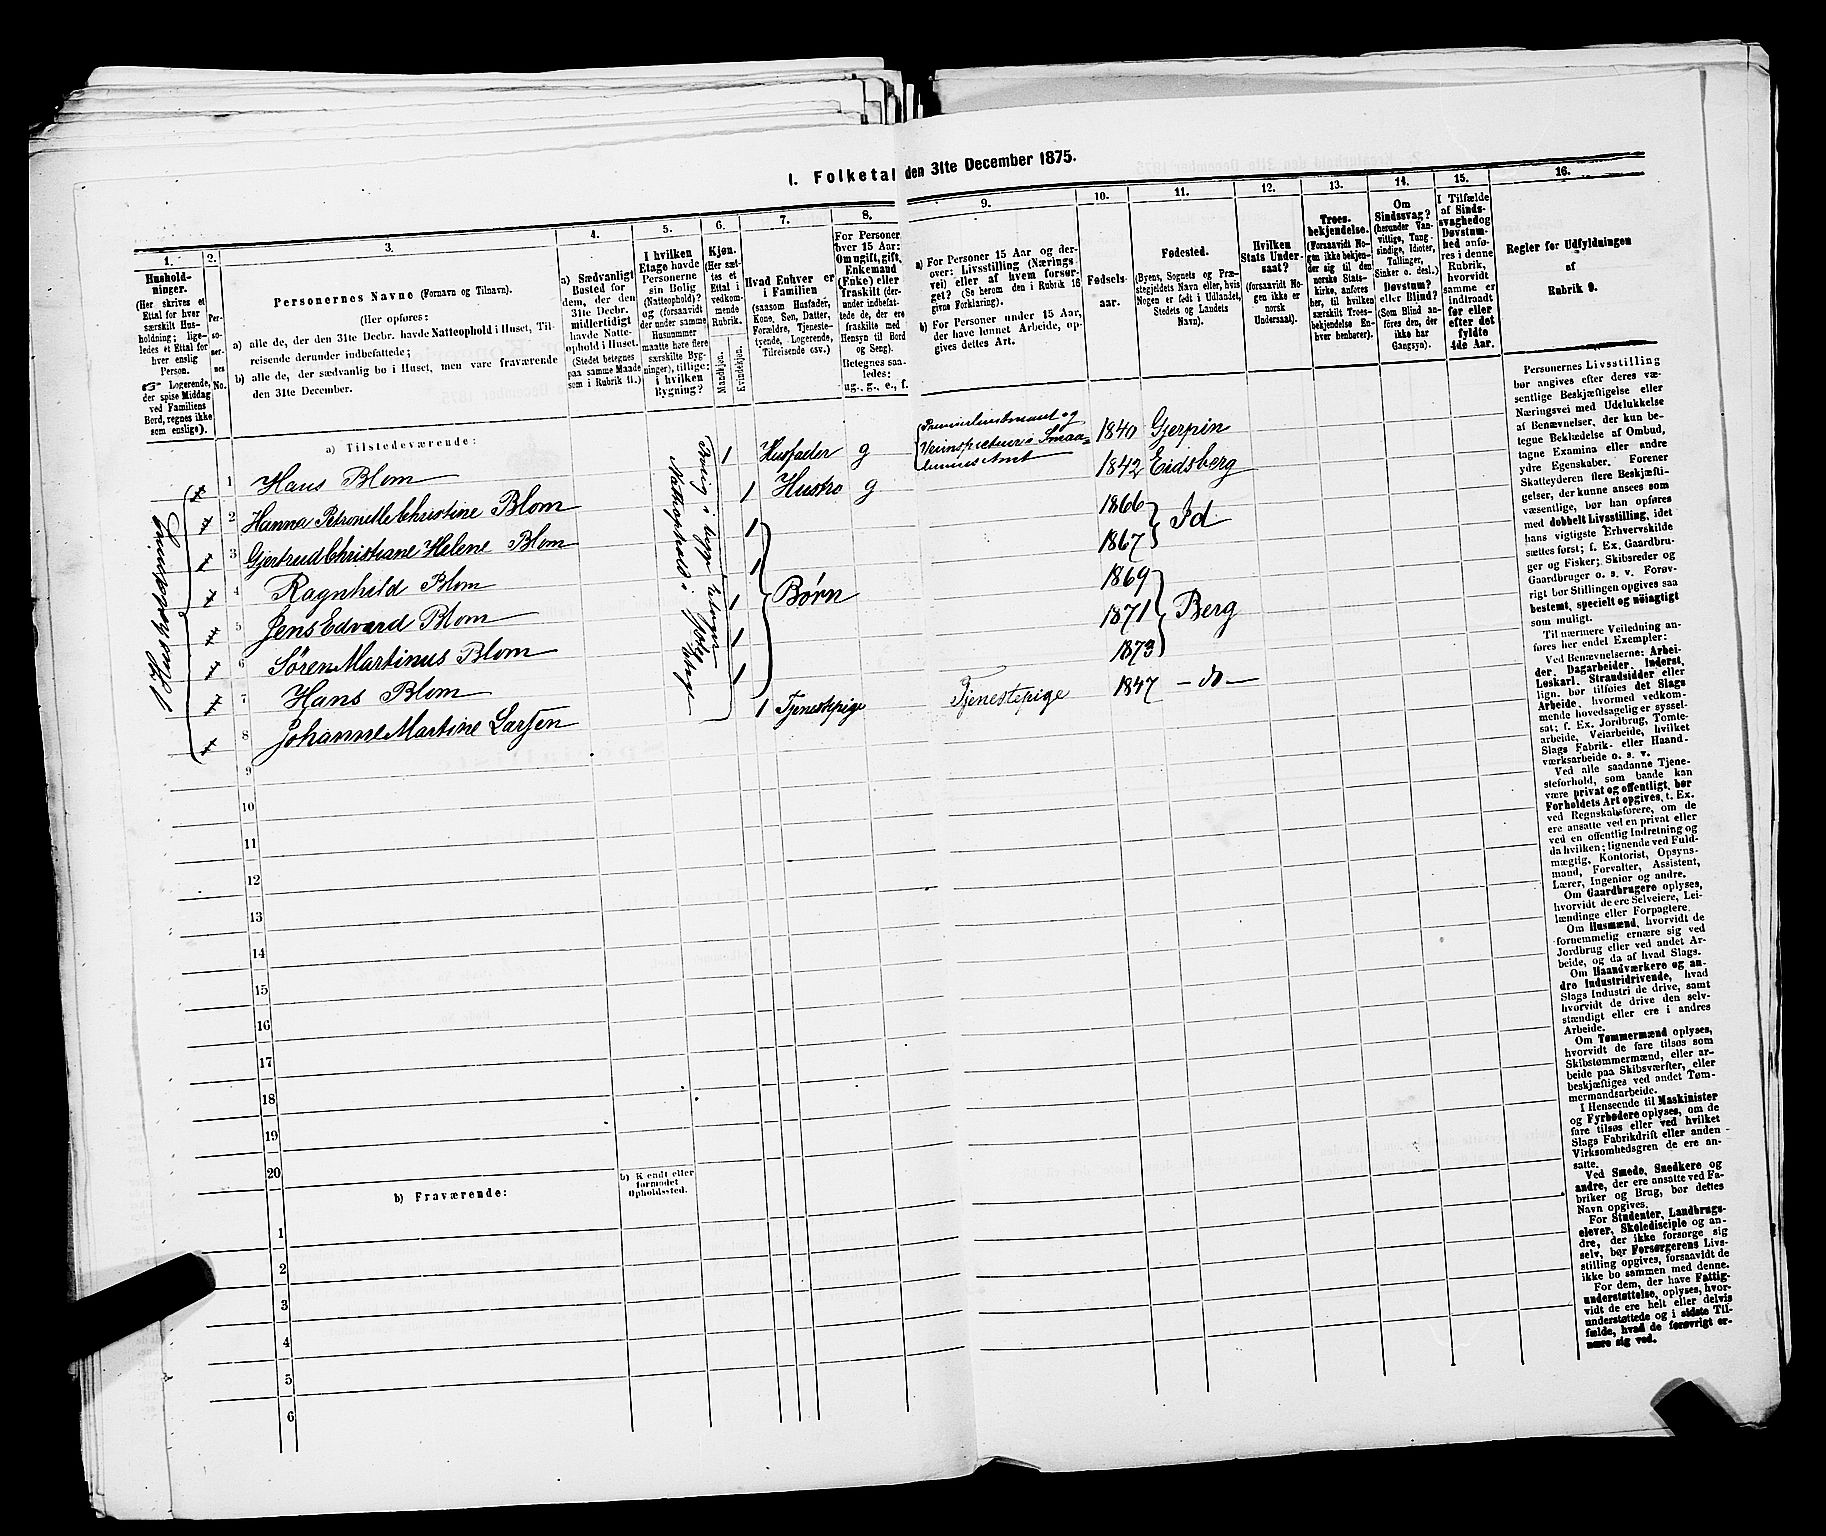 I. Folketal den 31te December 1875.
1.
Hushold-
ninger.
(Her skrives et
Ettal for hver
særskilt Hus-
holdning; lige-
ledes et Ettal for
hver enslig
Person.
☞ Logerende,
der spise Middag
ved Familiens
Bord, regnes ikke
som enslige).
2.
Per-
so-
ner-
nes
No.
3.
Personernes Navne (Fornavn og Tilnavn).
(Her opføres:
a) alle de, der den 31te Decbr. havde Natteophold i Huset, Til-
reisende derunder indbefattede;
b) alle de, der sædvanlig bo i Huset, men vare fraværende
den 31te December.
4.
a) Sædvanligt
Bosted for
dem, der den
31te Decbr.
midlertidigt
havde Natte-
ophold i Huset.
(Stedet betegnes
paa samme Maade
som i Rubrik 11.)
5.
I hvilken
Etage havde
Personerne
sin Bolig
(Natteophold)?
og (forsaavidt
der under samme
Husnummer
maatte høre flere
særskilte Byg-
ninger), tillige:
i hvilken
Bygning?
6.
Kjøn.
(Her sæt-
tes et
Ettal i
vedkom-
mende
Rubrik.
Mandkjøn.
Kvindekjøn.
7.
Hvad Enhver er
i Familien
(saasom Husfader,
Kone, Søn, Datter,
Forældre, Tjeneste-
tyende, Logerende,
Tilreisende osv.)
8.
For Personer
over 15 Aar:
Om ugift, gift,
Enkemand
(Enke) eller
fraskilt (der-
under indbefat-
tede de, der ere
fraskilte med
Hensyn til Bord
og Seng).
Betegnes saa-
ledes:
ug., g., e., f.
9.
a) For Personer 15 Aar og der-
over: Livsstilling (Nærings-
vei) eller af hvem forsør-
get? (Se herom den i Rubrik 16
givne Forklaring).
b) For Personer under 15 Aar,
der have lønnet Arbeide, op-
gives dettes Art.
10.
Fødsels-
aar.
11.
Fødested.
(Byens, Sognets og Præ-
stegjeldets Navn eller, hvis
Nogen er født i Udlandet,
Stedets og Landets
Navn).
12.
Hvilken
Stats Under-
saat?
(forsaavidt No-
gen ikke er
norsk
Undersaat).
13.
Troes-
bekjendelse.
(Forsaavidt No-
gen ikke bekjen-
der sig til den
norske Stats-
kirke, anføres
her, til hvilken
særskilt Troes-
bekjendelse En-
hver henhører).
14.
Om
Sindssvag?
(herunder Van-
vittige, Tung-
sindige, Idioter,
Tullinger,
Sinker o. desl.)
Døvstum?
eller Blind?
(Som Blind an-
føres den, der
ikke har
Gangsyn).
15.
I Tilfælde
af Sinds-
svaghed og
Døvstum-
hed anfø-
res i denne
Rubrik,
hvorvidt
samme er
indtraadt
før eller
efter det
fyldte
4de Aar.
16.
Regler for Udfyldningen
af
Rubrik 9.
a) Tilstedeværende:
1 Huusholdning
Bolig i begge Etager
Natteophold i øverste Etage
1 Hans Blom 1 Husfader g Premierlieutnant og Veiinspecteur i Smaa=lenenes Amt 1840 Gjerpen
2 Hanna Petronelle Christine Blom 1 Hustro g 1842 Eidsberg
3 Gjertrud Christiane Helene Blom 1 1866
4 Ragnhild Blom 1 1867 Id
5 Jens Edvard Blom 1 Børn 1869
6 Søren Martinus Blom 1 1871 Berg
7 Hans Blom 1 1873
8 Johanne Martine Larsen 1 Tjenestepige Tjenestepige 1847 – do –
9
10
11
12
13
14
15
16
17
18
19
20
b) Fraværende:
b) Kjendt eller
formodet
Opholdssted.
1
2
3
4
5
6
Personernes Livsstilling
bør angives efter deres væ-
sentlige Beskjæftigelse eller
Næringsvei med Udelukkelse
af Benævnelser, der kun be-
tegne Beklædelse af Ombud,
tagne Examina eller andre
ydre Egenskaber. Forener
Skatteyderen flere Beskjæfti-
gelser, der kunne ansees som
væsentlige, bør han opføres
med dobbelt Livsstilling, idet
hans vigtigste Erhvervskilde
sættes først; f. Ex. Gaardbru-
ger og Fisker; Skibsreder og
Gaardbruger o. s. v. Forøv-
rigt bør Stillingen opgives saa
bestemt, specielt og nøiagtigt
som muligt.
Til nærmere Veiledning an-
føres her endel Exempler:
Ved Benævnelserne: Arbei-
der, Dagarbeider, Inderst,
Løskarl, Strandsidder eller
lign. bør tilføies det Slags
Arbeide, hvormed vedkom-
mende hovedsagelig er syssel-
sat; f. Ex. Jordbrug, Tomte-
arbeide, Veiarbeide, hvilket
Slags Fabrik- eller Haand-
værksarbeide o. s. v.
Ved alle saadanne Tjene-
steforhold, som baade kan
være privat og offentligt, bør
Forholdets Art opgives, t. Ex.
ved Regnskabsførere, om de
ere ansatte ved en privat eller
ved en offentlig Indretning og
da hvilken; lignende ved Fuld-
mægtig, Kontorist, Opsyns-
mand, Forvalter, Assistent,
Lærer, Ingeniør og andre.
Om Gaardbrugere oplyses,
hvorvidt de ere Selveiere, Lei-
lændinge eller Forpagtere.
Om Husmænd, hvorvidt de
fornemmelig ernære sig ved
Jordbrug eller ved andet Ar-
beide, og da af hvad Slags.
Om Haandværkere og an-
dre Industridrivende, hvad
Slags Industri de drive, samt
hvorvidt de drive den selv-
stændigt eller ere i andres
Arbeide.
Om Tømmermænd oplyses,
hvorvidt de fare tilsøs som
Skibstømmermænd, eller ar-
beide paa Skibsværfter, eller
beskjæftiges ved andet Tøm-
mermandsarbeide.
I Henseende til Maskinister
og Fyrbødere oplyses, om de
fare tilsøs eller ved hvilket
Slags Fabrikdrift eller anden
Virksomhedsgren de ere an-
satte.
Ved Smede, Snedkere og
andre, der ere ansatte ved Fa-
briker og Brug, bør dettes
Navn opgives.
For Studenter, Landbrugs-
elever, Skoledisciple og an-
dre, der ikke forsørge sig
selv, bør Forsørgerens Livs-
stilling opgives, forsaavidt de
ikke bo sammen med denne.
For dem, der have Fattig-
understøttelse, oplyses, hvor-
vidt de ere helt eller delvis
understøttede og i sidste Til-
fælde, hvad de forøvrigt er-
nære sig ved.